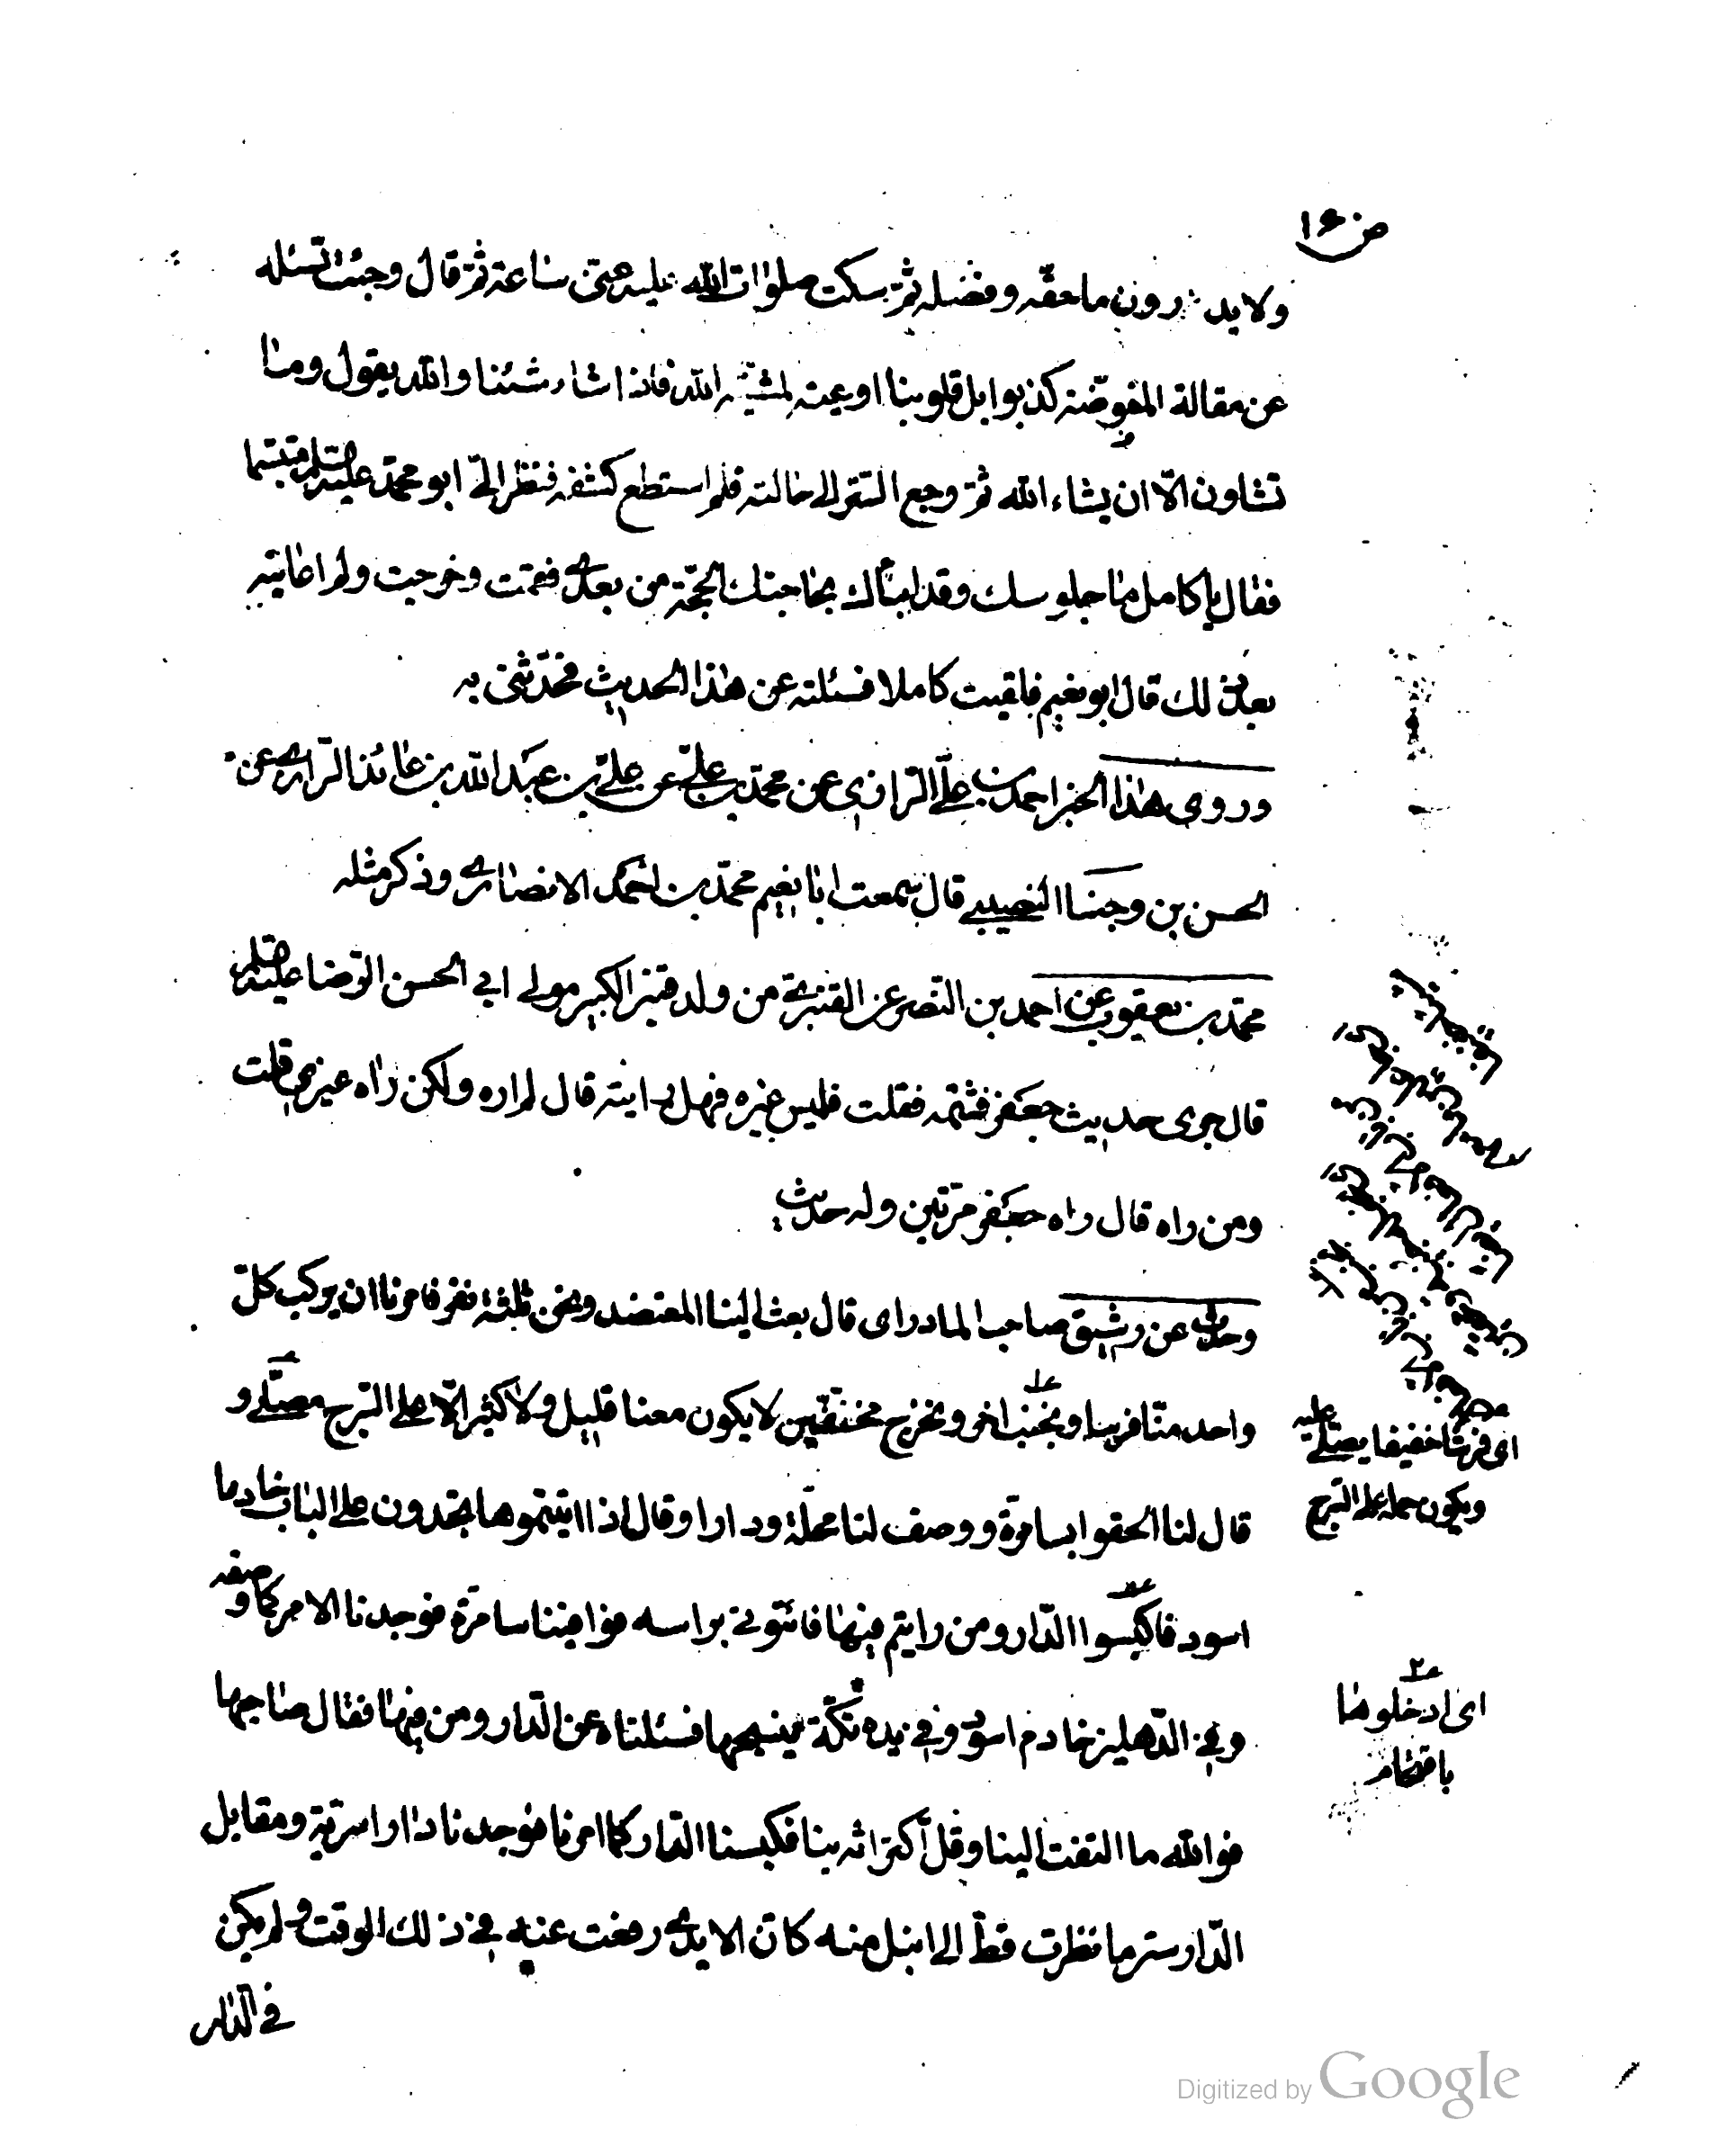 ص ١٦
ولا يدرون ما حقه وفضله ثم سكت صلوات الله عليه عني ساعة ثم قال وجئت تسئله
عن مقالة المفوّضة كذبوا بل قلوبنا اوعية لمشيّة الله فاذا شاء شئنا والله يقول وما
تشاون الّا ان يشاء الله ثم رجع الستر الى حالته فلم استطع كشفه فنظر الىّ ابو محمد عليه السلم متبسّما
فقال يا كامل ما جلوسك وقد انبأك بحاجتك الحجّة من بعدي فقمت وخرجت ولم اعاينه
بعد ذلك قال ابو نعيم فلقيت كاملا فسئلته عن هذا الحديث فحدّثني به
وروى هذا الخبر احمد بن علي الرازي عن محمد بن علي عن علي بن عبد الله بن عائذ الرازي عن
الحسن بن وجنا النصيبي قال سمعت ابا نعيم محمد بن احمد الانصاري وذكر مثله
محمد بن يعقوب عن احمد بن النضر عن القنبري من ولد قنبر الكبير مولى ابي الحسن الرضا عليه السلم
قال جرى حديث جعفر فشتمه فقلت فليس غيره فهل رايته قال لم اره ولكن راه غيري قلت
ومن راه قال راه جعفر مرتين وله حديث
وحدث عن رشيق صاحب المادراى قال بعث الينا المعتضد ونحن ثلثة نفر فامرنا ان يركب كلّ
واحد منّا فرسا ويجنب اخر ونخرج مخفّين لا يكون معنا قليل ولا كثير الّا على السّرج مصلّى و
قال لنا الحقوا بسامرة ووصف لنا محلّة ودارا وقال اذا اتيتموها تجدون على الباب خادما
اسود فاكبسوا الدّار ومن رايتم فيها فائتوني براسه فوافينا سامرّة فوجدنا الامر كما وصفه
وفي الدّهليز خادم اسود وفي يده تكّة ينسجها فسئلناه عن الدّار ومن فيها فقال صاحبها
فوالله ما التفت الينا وقلّ اكتراثه بنا فكبسنا الدّار كما امرنا فوجدنا دارا سريّة ومقابل
الدّار ستر ما نظرت قطّ الى انبل منه كانّ الايدي رفعت عنه في ذلك الوقت ولم يكن
في الدّار
اى فرشا خفيفا يصلّى عليه
ويكون حمله على السّرج
اى ادخلوها
باقتحام
Digitized by Google